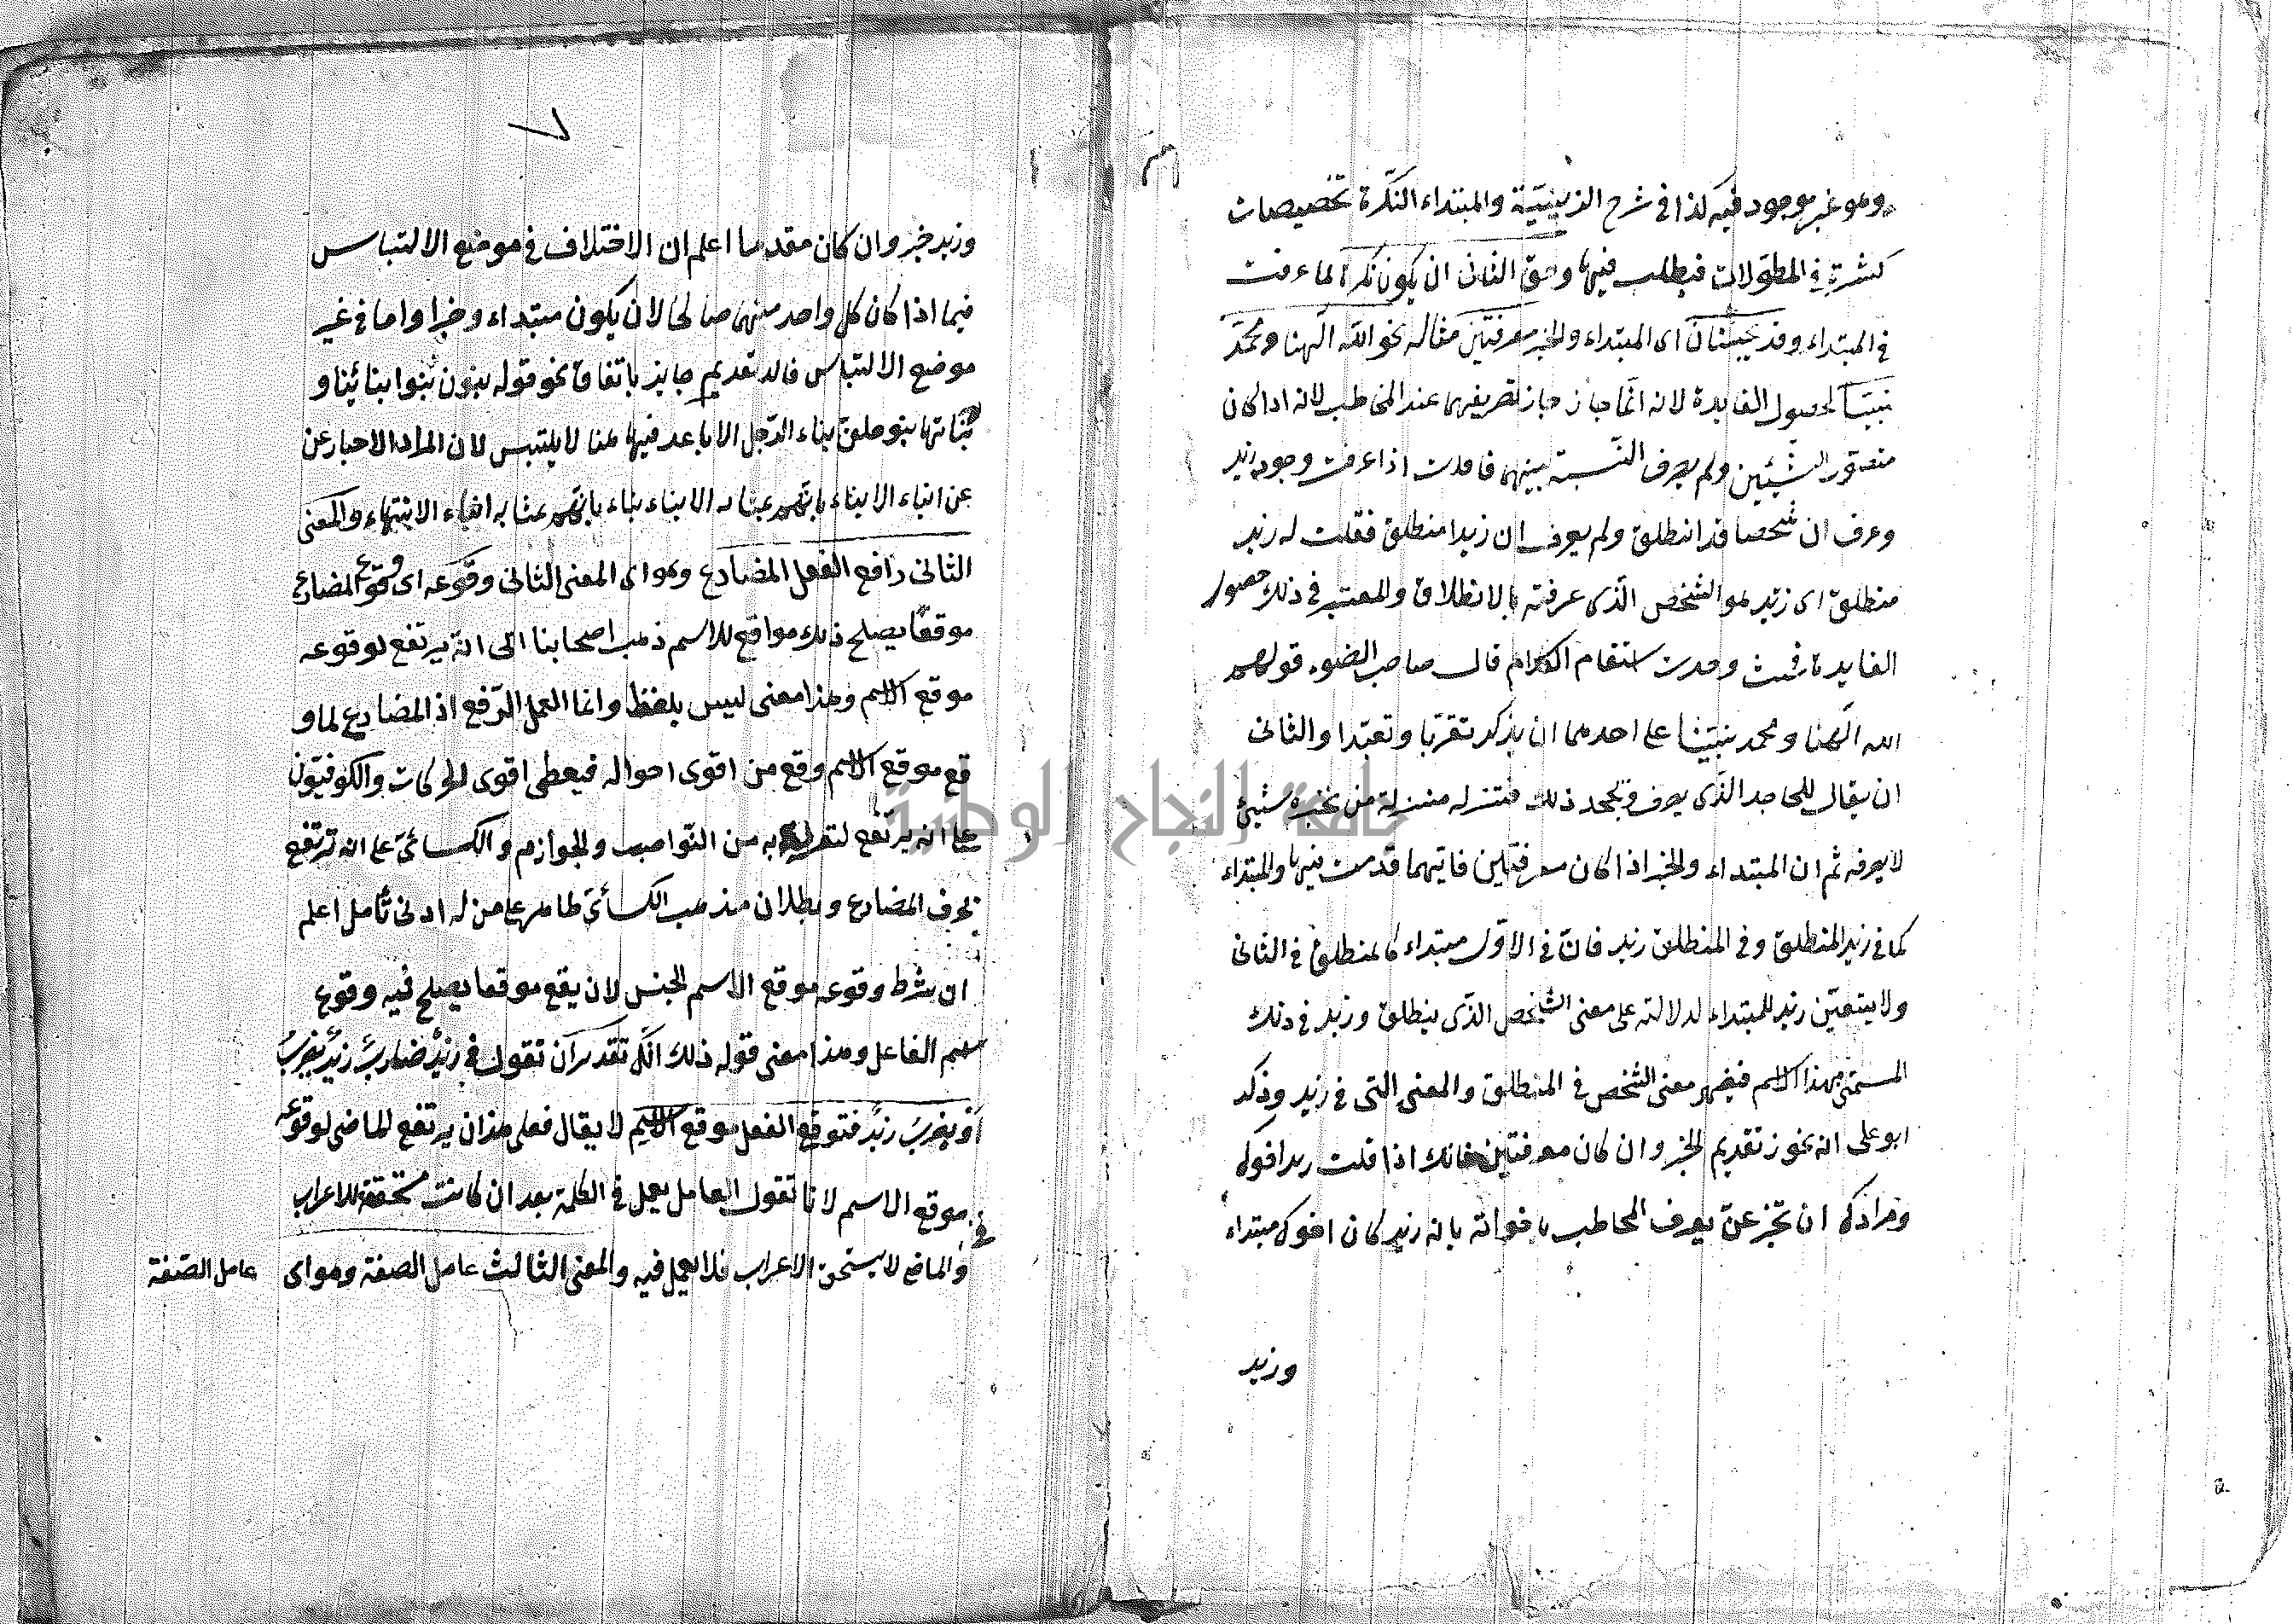 وهو غير موجود فيه كذا في شرح الزينيّية والمبتداء النكّرة تخصيصات
كثيرة في المطوّلات فيطلب فيها وحقّ الثاني ان يكون نكرة لما عرفت
في المبتداء وقد يجيئان اى المبتداء والخبر معرفتين مثاله نحو الله الٰهنا ومحمّد
نبيّنا لحصول الفايدة لانه انّما جاز تعريفهما عند المخاطب لانه اذا كان
متصوّر الشيئين ولم يعرف النّسبة بينهما فافادت اذا عرفت وجود زيد
وعرف ان شخصا قد انطلق ولم يعرف ان زيدا منطلق فقلت له زيد
منطلق اى زيد هو الشخص الّذى عرفته بالانطلاق والمعتبر في ذلك حصول
الفايدة فحيث وجدت استقام الكلام قال صاحب الضوء قولهم
الله الٰهنا ومحمد نبيّنا على احدهما ان يذكر تقرّبا وتعبّدا والثانى
ان يقال للجاحد الّذى يعرف ويجحد ذلك فتنزله منزلة من تخبره شيئ
لا يعرفه ثم ان المبتداء والخبر اذا كان معرفتين فايّهما قدمت فهو المبتداء
كما في زيد المنطلق وفى المنطلق زيد فانّ في الاوّل مبتداء كالمنطلق في الثانى
ولا يتعيّن زيد للمبتداء لدلالته على معنى الشخص الذّى ينطلق وزيد في ذلك
المسمّى بهذا الاسم فيضمر معنى الشخص في المنطلق والمعنى التى في زيد وذكر
ابو على انه يجوز تقديم الخبر وان كان معرفتين فانك اذا قلت زيد اخوك
ومرادك ان تخبر عمّن يعرف المخاطب باخوانه بانه زيد كان اخوك مبتداء
وزيد
٧
وزيد خبر وان كان مقدما اعلم ان الاختلاف في موضع الالتباس
فيما اذا كان كل واحد منهما صالحا لان يكون مبتداء وخبرا واما في غير
موضع الالتباس فالتقديم جايز باتفاق نحو قوله بنون بنوا بنائنا و
بناتها بنوهنّ بناء الرّجل الاباعد فيها هنا لا يلتبس لان المراد الاخبار عن
عن ابناء الابناء بانّهم بمثابه الابناء بناء بانّهم بمثابه ابناء الابنهاء والمعنى
الثانى رافع الفعل المضارع وهو اى المعنى الثانى وقوعه اى وقوع المضارع
موقعًا يصلح ذلك مواقع للاسم ذهب اصحابنا الى انّه يرتفع لوقوعه
موقع الاسم وهذا معنى ليس بلفظ وانما العمل الرّفع اذ المضارع لما و
قع موقع الاسم وقع من اقوى احواله فيعطى اقوى الحركات والكوفيّون
على انه يرتفع لتعريه به من النّواصب والجوازم والكسائىّ على انه ترتفع
بحرف المضارع وبطلان مذهب الكسائىّ ظاهر على من له ادنى تأمل اعلم
ان شرط وقوعه موقع الاسم الجنس لان يقع موقعا يصلح فيه وقوع
اسم الفاعل وهذا معنى قوله ذلك انّك تقدر ان تقول في زيدٌ ضاربٌ زيدٌ يضربُ
أو يضربُ زيدٌ فتوقع الفعل موقع الاسم لا يقال فعلى هذا ان يرتفع الماضى لوقوعه
موقع الاسم لانا تقول العامل يعمل في الكلمة بعد ان كانت مستحقة للاعراب
والماضى لا يستحق الاعراب فلا يعمل فيه والمعنى الثالث عامل الصفة وهو اى عامل الصّفة
جامعة النجاح الوطنية